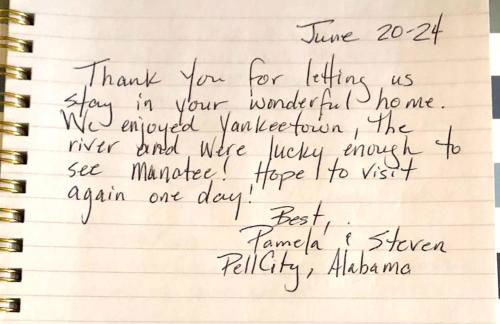 June 20-24
Thank you for letting us
stay in your wonderful home.
We enjoyed Yankeetown, the
river and were lucky enough to
see Manatee! Hope to visit
again one day!
Best,
Pamela & Steven
Pell City, Alabama